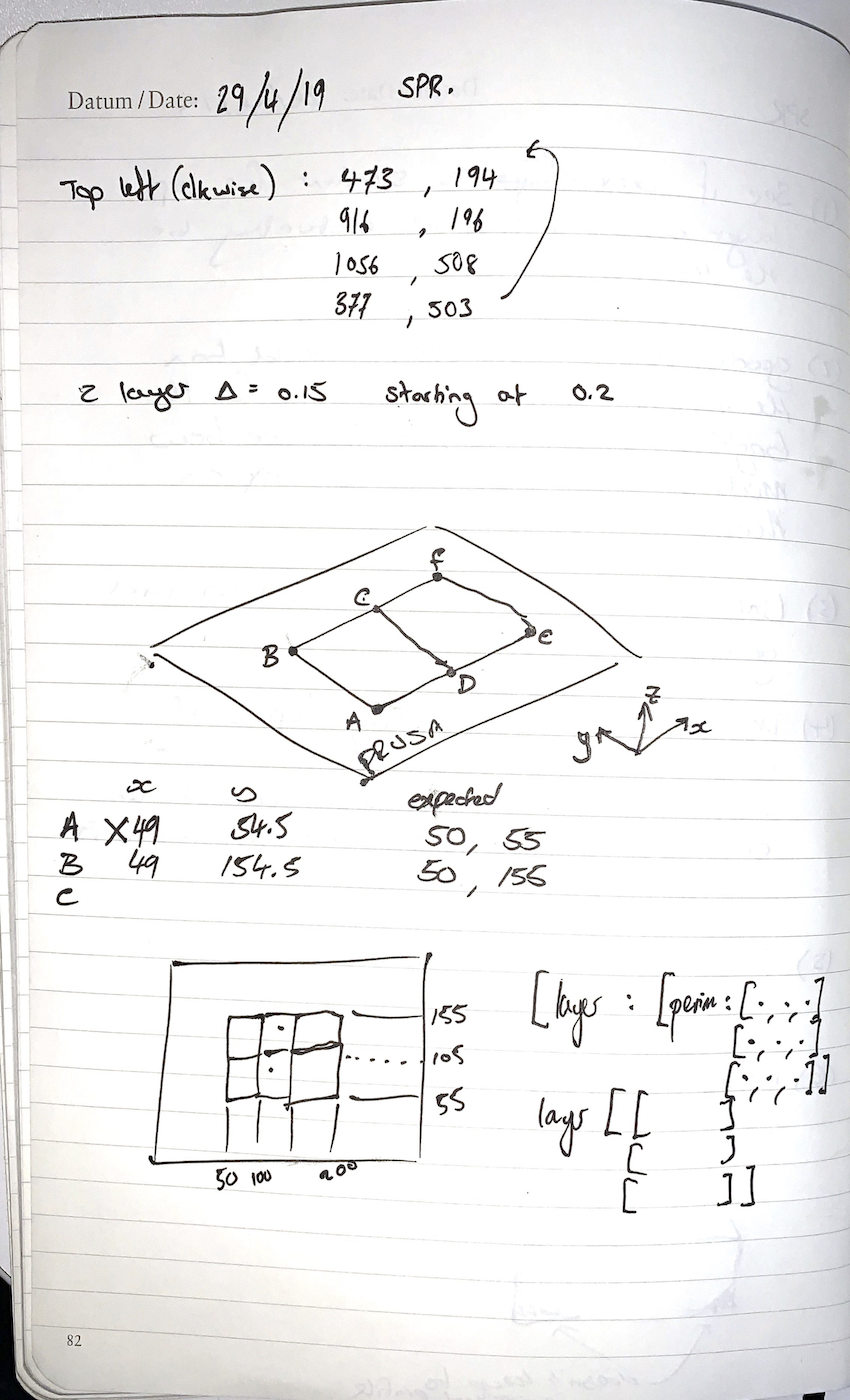 Datum / Date: 29/4/19 SPR.
Top left (clkwise) : 473 , 194
916 , 196
1056 , 508
377 , 503
z layer Δ = 0.15 starting at 0.2
F
C
B
E
D
A
PRUSA
z
y x
x y expected
A X49 54.5 50, 55
B 49 154.5 50, 155
C
[layer : [perim: [. , . , .]
[. , . , .]
[. , . , .]]
155
105
55
layer [[ ]
[ ]
[ ]]
50 100 200
82